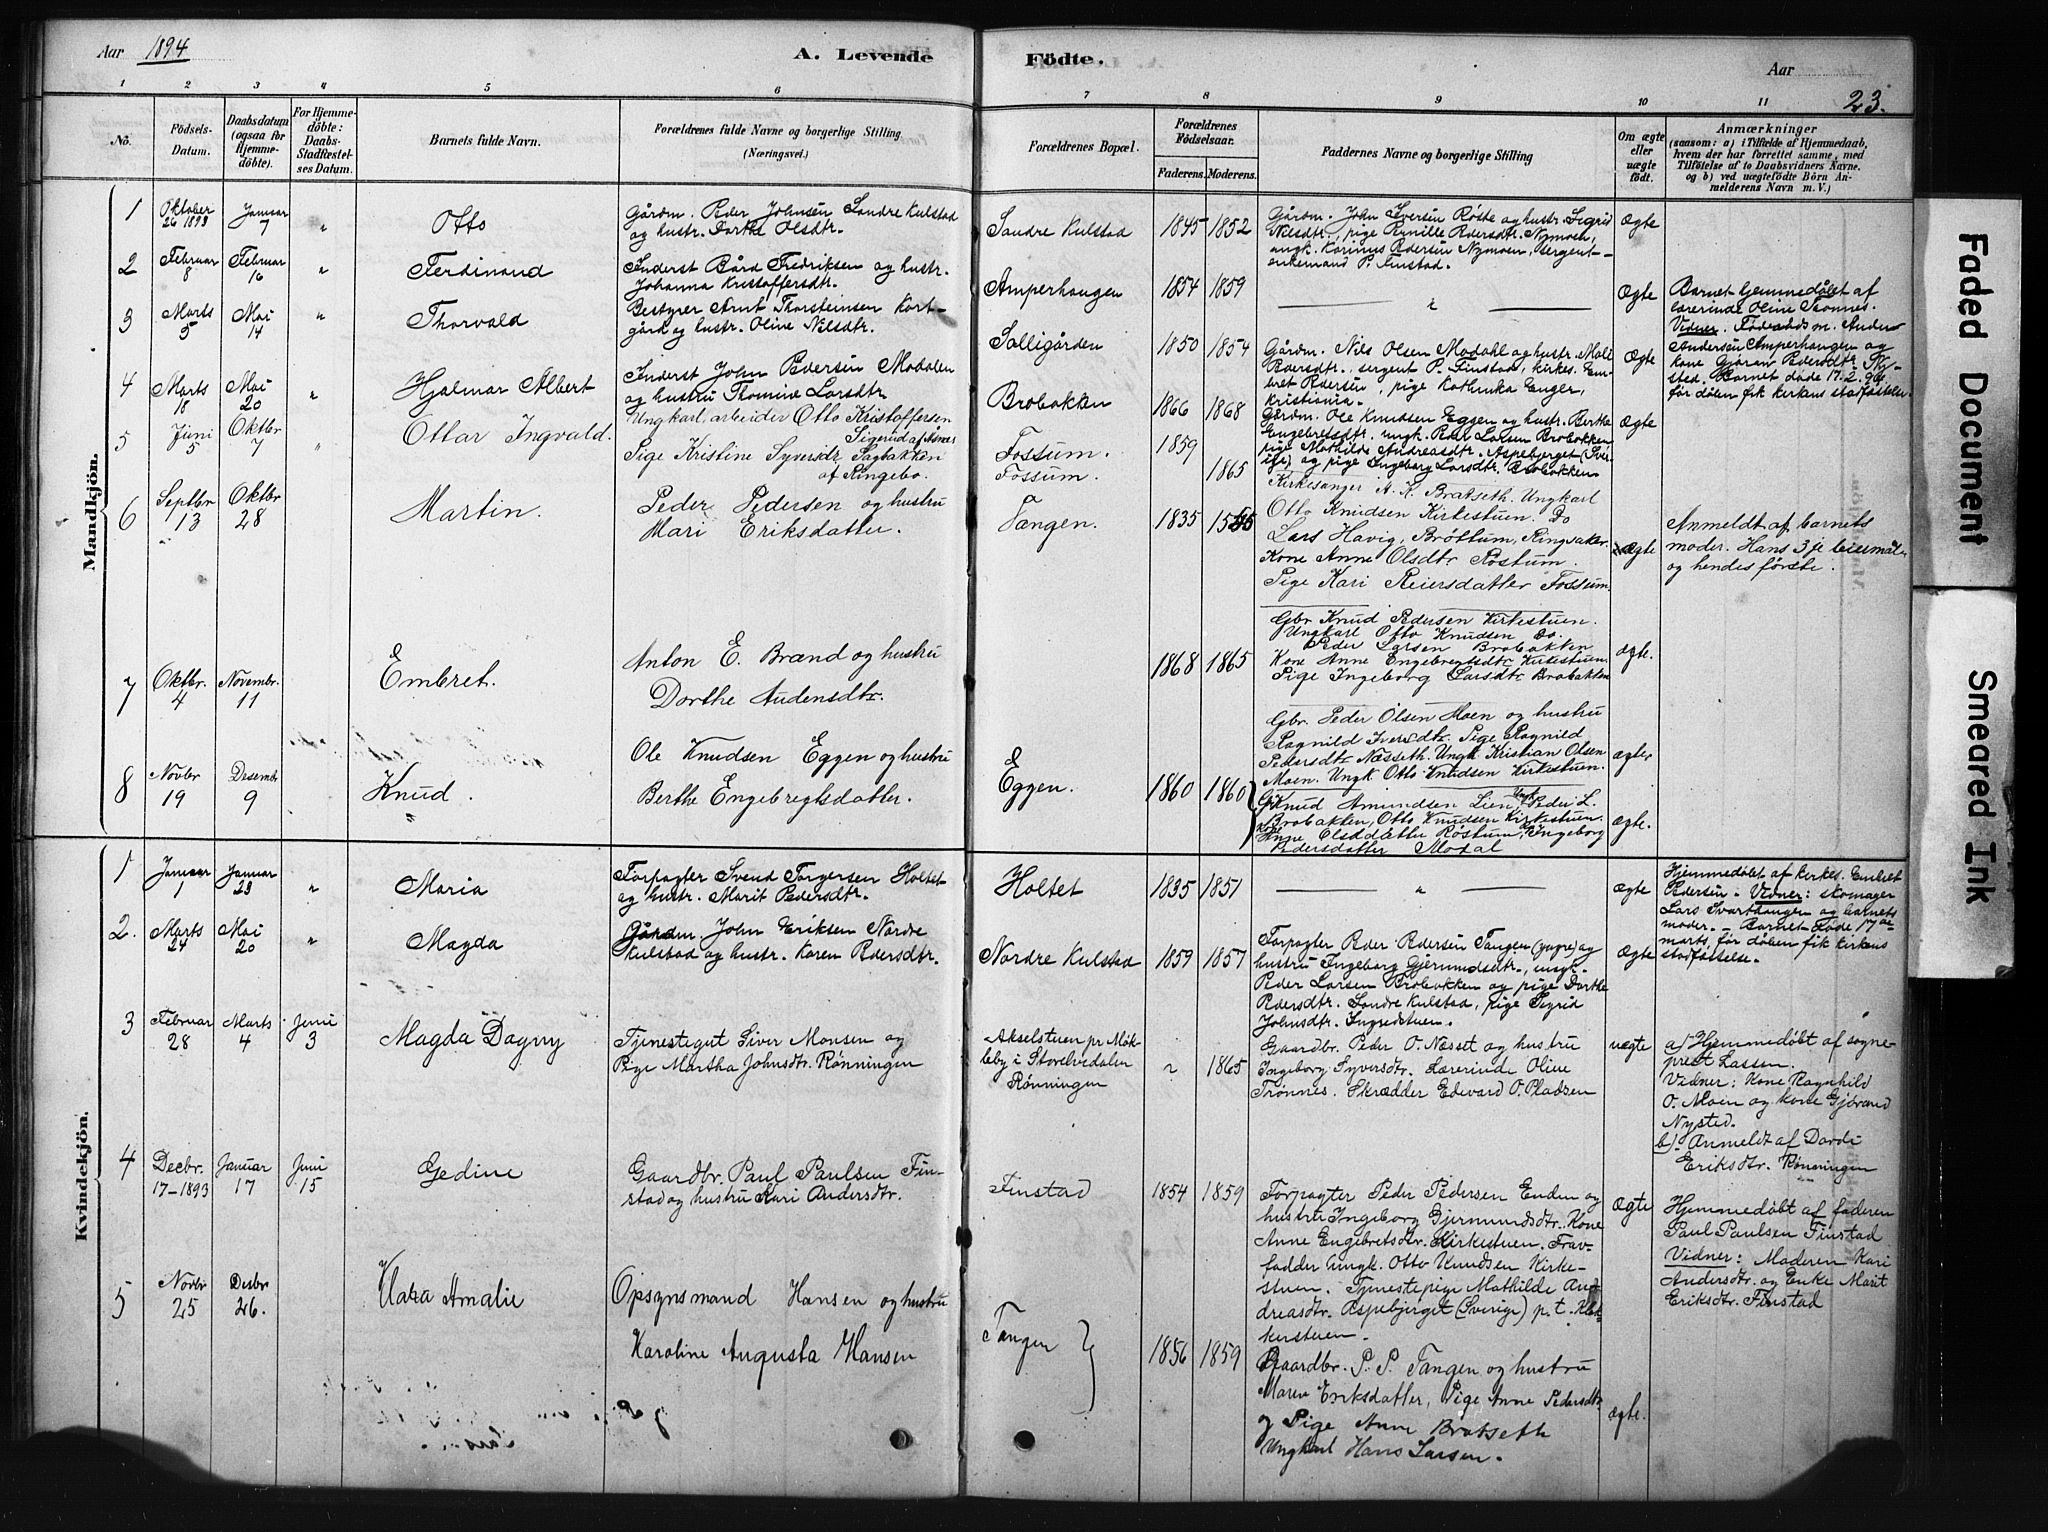 Aar 1894
A. Levende Födte.
Aar
23.
1 2 3 4 5 6 7 8 9 10 11
No.
Födsels-Datum.
Daabsdatum (ogsaa for Hjemme-döbte).
For Hjemme-döbte: Daabs-Stadfæstel-ses Datum.
Barnets fulde Navn.
Forældrenes fulde Navne og borgerlige Stilling (Næringsvei.)
Forældrenes Bopæl.
Forældrenes Födselsaar.
Faderens. Moderens.
Faddernes Navne og borgerlige Stilling
Om ægte eller uægte födt.
Anmærkninger
(saasom: a) i Tilfælde af Hjemmedaab,
hvem der har forrettet samme, med
Tilföielse af to Daabsvidners Navne.
og b) ved uægtefödte Börn An-
melderens Navn m. V.)
Mandkjön.
1 Oktober 26 1893 Januar 7 " Otto
Gårdm. Peder Johnsen Søndre Kulstad
og hustr. Dorthe Olsdtr.
Søndre Kulstad 1845 1852
Gårdm. John Iversen Røste og hustr. Sigrid
Nilsdtr., pige Pernille Pedersdtr. Nymoen,
ungk. Karinus Pedersen Nymoen, sergent
enkemand P. Finstad.
Ægte
2 Februar 8 Februar 16 " Ferdinand
Inderst Bård Fredriksen og hustr.
Johanna Kristoffersdtr.
Amperhaugen 1854 1859 — " — Ægte
Barnet hjemmedøbt af
lærerinde Oline Trønnes.
Vidner. Fødsdsm. Anders
Andersen Amperhaugen og
kone Gjøran Pedersdtr. Ny-
sted. Barnet døde 17.2.94
før dåben fik kirkens stadfæstelse.
3 Marts 5 Mai 14 " Thorvald
Bestyrer Arnt Thorsteinsen Kort-
gård og hustr. Oline Nilsdtr.
Solligården 1850 1854
Gårdm. Nils Olsen Modahl og hustr. Mali
Pedersdtr. sergent P. Finstad, kirkes. Em-
bret Pedersen, pige Kathinka Enger,
Kristiania.
Ægte
4 Marts 18 Mai 20 " Hjalmar Albert
Inderst John Pedersen Modalen
og hustru Thomine Larsdtr
Brobakken 1866 1868
Gårdm. Ole Knudsen Eggen og hustr. Berthe
Engebretsdtr. ungk. Peder Larsen Brobakken
pige Mathilde Andreasdtr. Aspeberget (Sve-
rige) og pige Ingeborg Larsdtr. Brobakken
Ægte
5 Juni 5 Oktbr 7 " Ottar Ingvald.
Ungkarl, arbeider Otto Kristoffersen
Sigerud af Åsnes
Pige Kristine Syversdtr Sagbakken
af Ringebo.
Fossum. 1859
Fossum. 1865
Kirkesanger A. K. Bratseth. Ungkarl
Otto Knudsen Kirkestuen. Do
Lars Havig, Brøttum, Ringsaker.
Kone Anne Olsdtr Røstum.
Pige Kari Reiersdatter Fossum.
uægte
Anmeldt af barnets
moder. Hans 3je leiermål
og hendes første.
6 Septbr 13 Oktbr 28 Martin.
Peder Pedersen og hustru
Mari Eriksdatter.
Tangen. 1835
Gbr Knud Pedersen Kirkestuen.
Ungkarl Otto Knudsen Do.
Peder Larsen Brobakken
Kone Anne Engebregtsdtr Kirkestuen.
Pige Ingeborg Larsdtr Brobakken
ægte.
7 Oktbr. 4 Novembr. 11 Embret.
Anton E. Brænd og hustru
Dorthe Audensdtr.
1868 1865
Gbr. Peder Olsen Moen og hustru
Ragnild Iversdtr. Pige Ragnild
Pedersdtr Næsseth. Ungk Kristian Olsen
Moen. Ungk. Otto Knudsen Kirkestuen.
ægte
8 Novbr 19 Desembr 9 Knud.
Ole Knudsen Eggen og hustru
Berthe Engebregtsdatter.
Eggen. 1860 1860
Gbr Knud Amundsen Lien, Ungk. Peder L.
Brobakken, Otto Knudsen Kirkestuen.
Kone Anne Olsddatter Røstum, Ingeborg
Pedersdatter Modal
ægte.
Kvindekjön.
1 Januar 1 Januar 23 " Maria
Forpagter Svend Torgersen Holtet
og hustr. Marit Pedersdtr.
Holtet 1835 1851 — " — ægte
Hjemmedøbt af kirkes. Embret
Pedersen. Vidner: skomager
Lars Svarthaugen og barnets
moder. – Barnet døde 17de
marts, før dåben fik kirkens
stadfæstelse.
2. Marts 24 Mai 20 " Magda
Gårdm. John Eriksen Nordre
Kulstad og hustr. Karen Pedersdtr.
Nordre Kulstad 1859 1857
Forpagter Peder Pedersen Tangen (yngre) og
hustru Ingeborg Gjermundsdtr., ungk.
Peder Larsen Brobakken og pige Dorthe
Pedersdtr. Søndre Kulstad, pige Sigrid
Johnsdtr. Ingridstuen.
ægte
3 Februar 28 Marts 4 Juni 3 Magda Dagny
Tjenestegut Siver Monsen og
Pige Martha Johnsdtr. Rønningen
Akselstuen pr Møk-
leby i Storelvedalen
Rønningen
" 1865
Gaardbr. Peder O. Næsset og hustru
Ingeborg Syversdtr. Lærerinde Oline
Trønnes. Skrædder Edevard O. Pladsen
uægte
a) Hjemmedøbt af sogne-
prest Lassen.
Vidner: Kone Ragnhild
O. Moen og kone Gjørand
Nysted.
b). Anmeldt af Dordi
Eriksdtr. Rønningen
4 Decbr. 17–1893 Januar 17 Juni 15 Gedine
Gaardbr. Paul Paulsen Fin-
stad og hustru Kari Andersdtr.
Finstad 1854 1859
Forpagter Peder Pedersen Enden og
hustru Ingeborg Gjermundsdtr. Kone
Anne Engebretsdtr. Kirkestuen. Frav-
fadder Ungk. Otto Knudsen Kirke-
stuen. Tjenestepige Mathilde And-
dreasdtr. Aspebjerget (Sverige) p.t. Kir-
kestuen.
Ægte
Hjemmedøbt af faderen
Paul Paulsen Finstad
Vidner: Moderen Kari
Andersdtr. og Enke Marit
Eriksdtr. Finstad
5 Novbr 25 Desbr 26. Klara Amalie
Opsynsmand Hansen og hustru
Karoline Augusta Hansen
Tangen 1856 1859
Gaardbr. P. P. Tangen og hustru
Maren Eriksdatter, Pige Anne Pedersdtr
og Pige Anne Bratseth
Ungkarl Hans Larsen.
ægte.
Faded Document
Smeared Ink